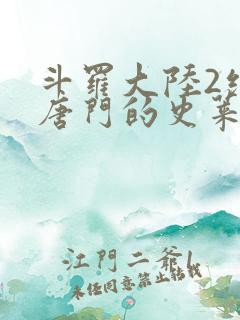 斗羅大陸2
唐門的史萊
江門二爺l
未經同意禁止轉載